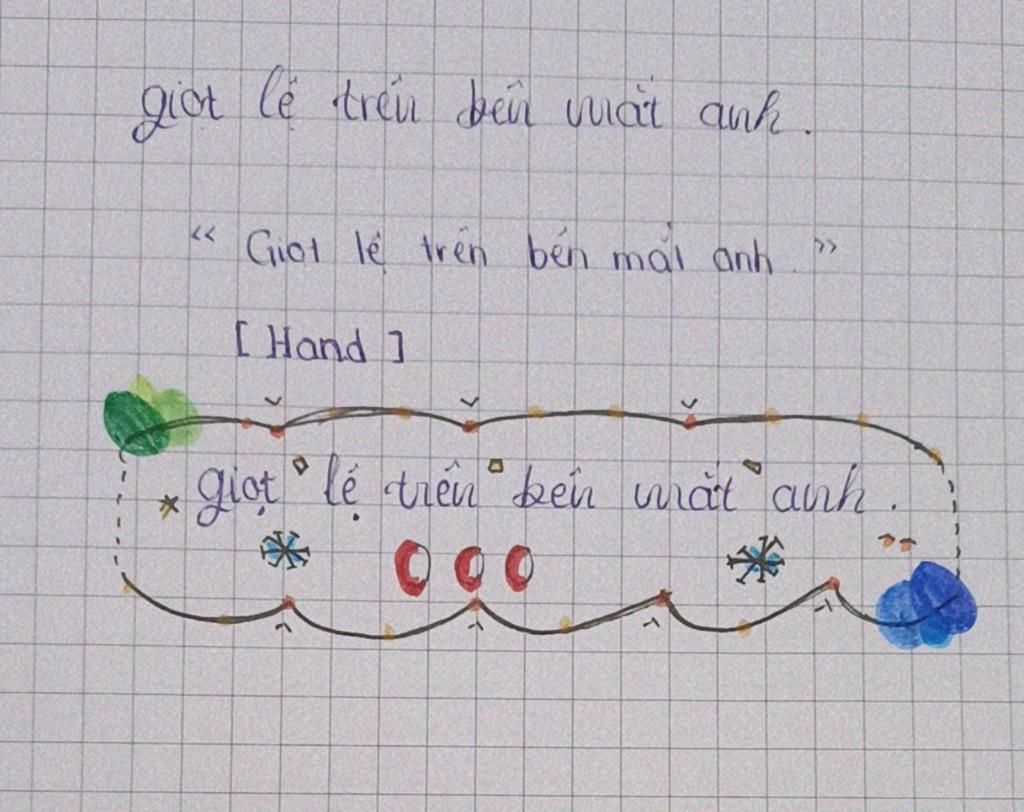 giọt lệ trên bên mắt anh.
“ Giọt lệ trên bên mắt anh. ”
[ Hand ]
giọt lệ trên bên mắt anh.